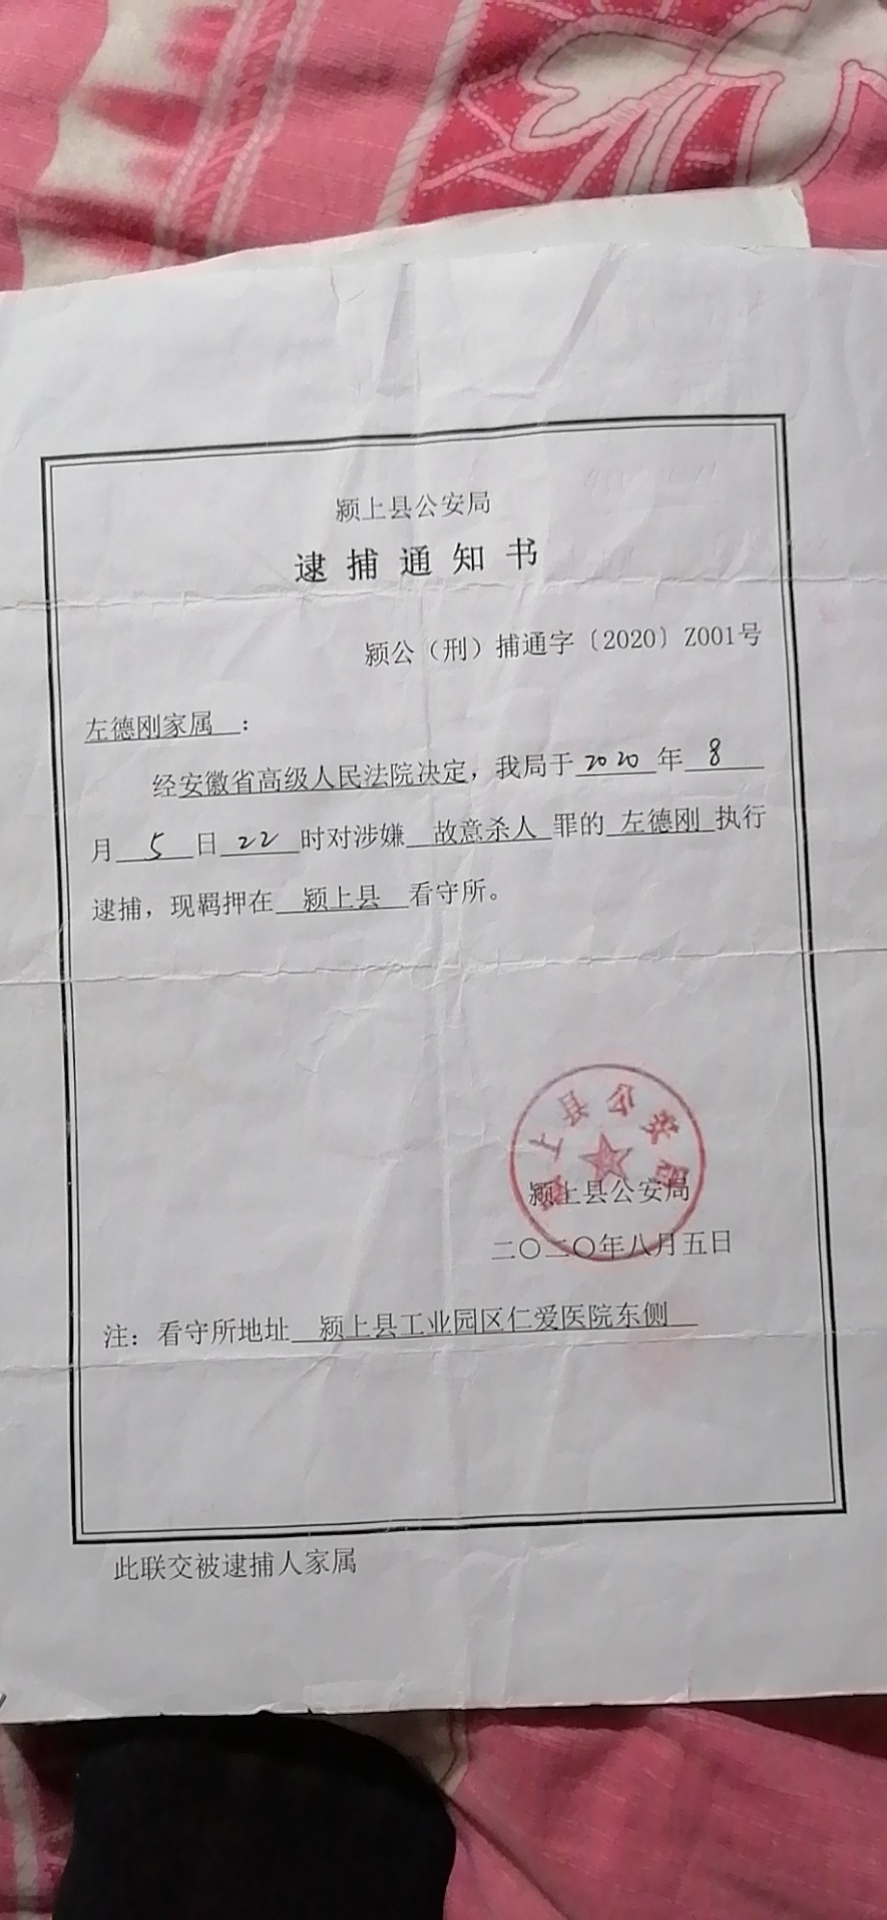 颍上县公安局
逮捕通知书
颍公（刑）捕通字〔2020〕Z001号
左德刚家属：
经安徽省高级人民法院决定，我局于2020年8
月5日22时对涉嫌 故意杀人 罪的 左德刚 执行
逮捕，现羁押在 颍上县 看守所。
上县公安局
颍上县公安局
二〇二〇年八月五日
注：看守所地址 颍上县工业园区仁爱医院东侧
此联交被逮捕人家属